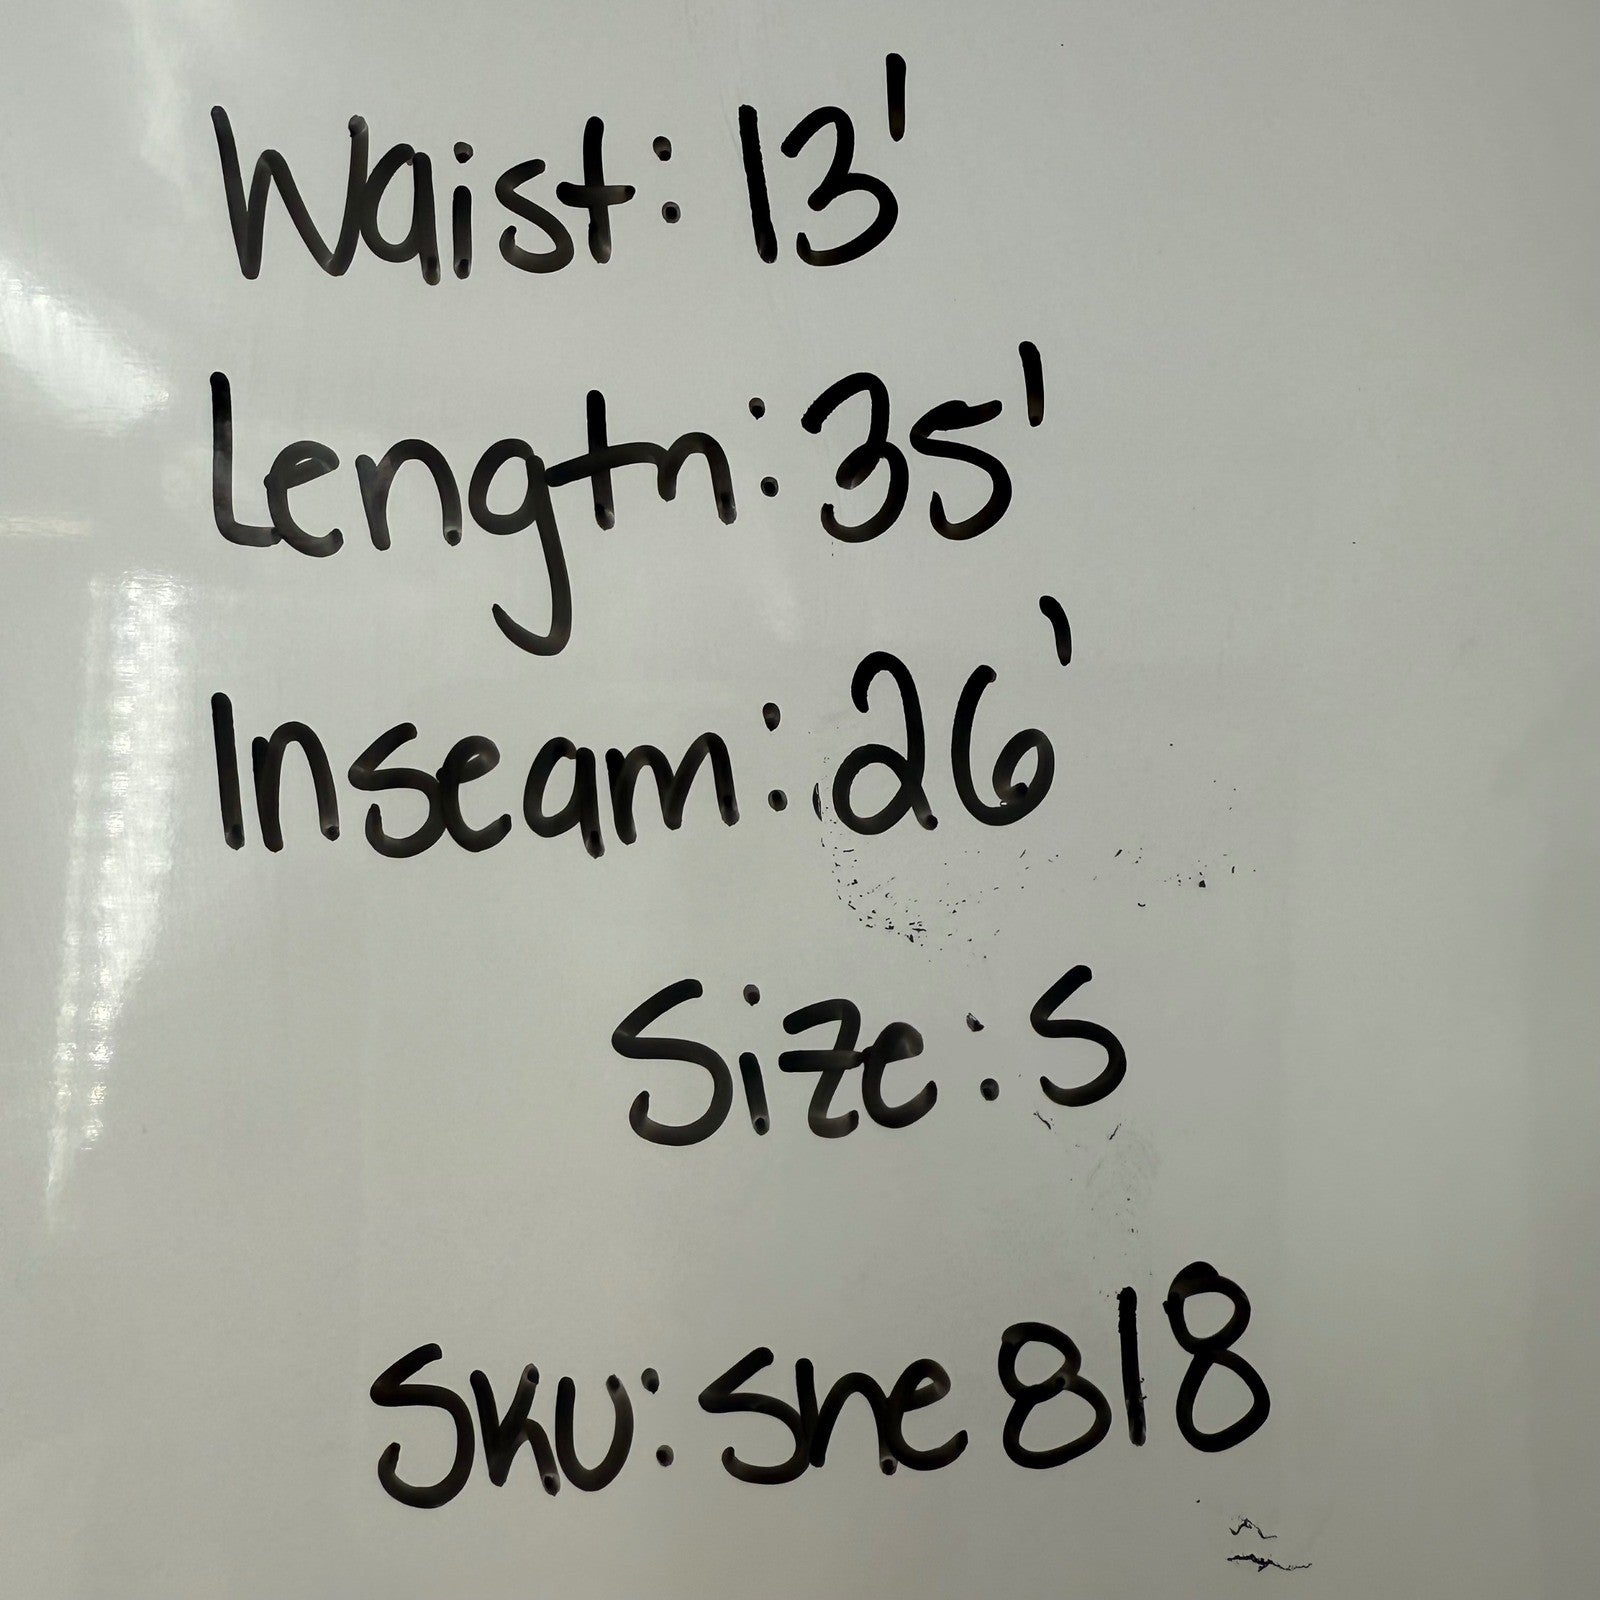 Waist: 13'
Length: 35'
Inseam: 26'
Size: S
SKU: She818